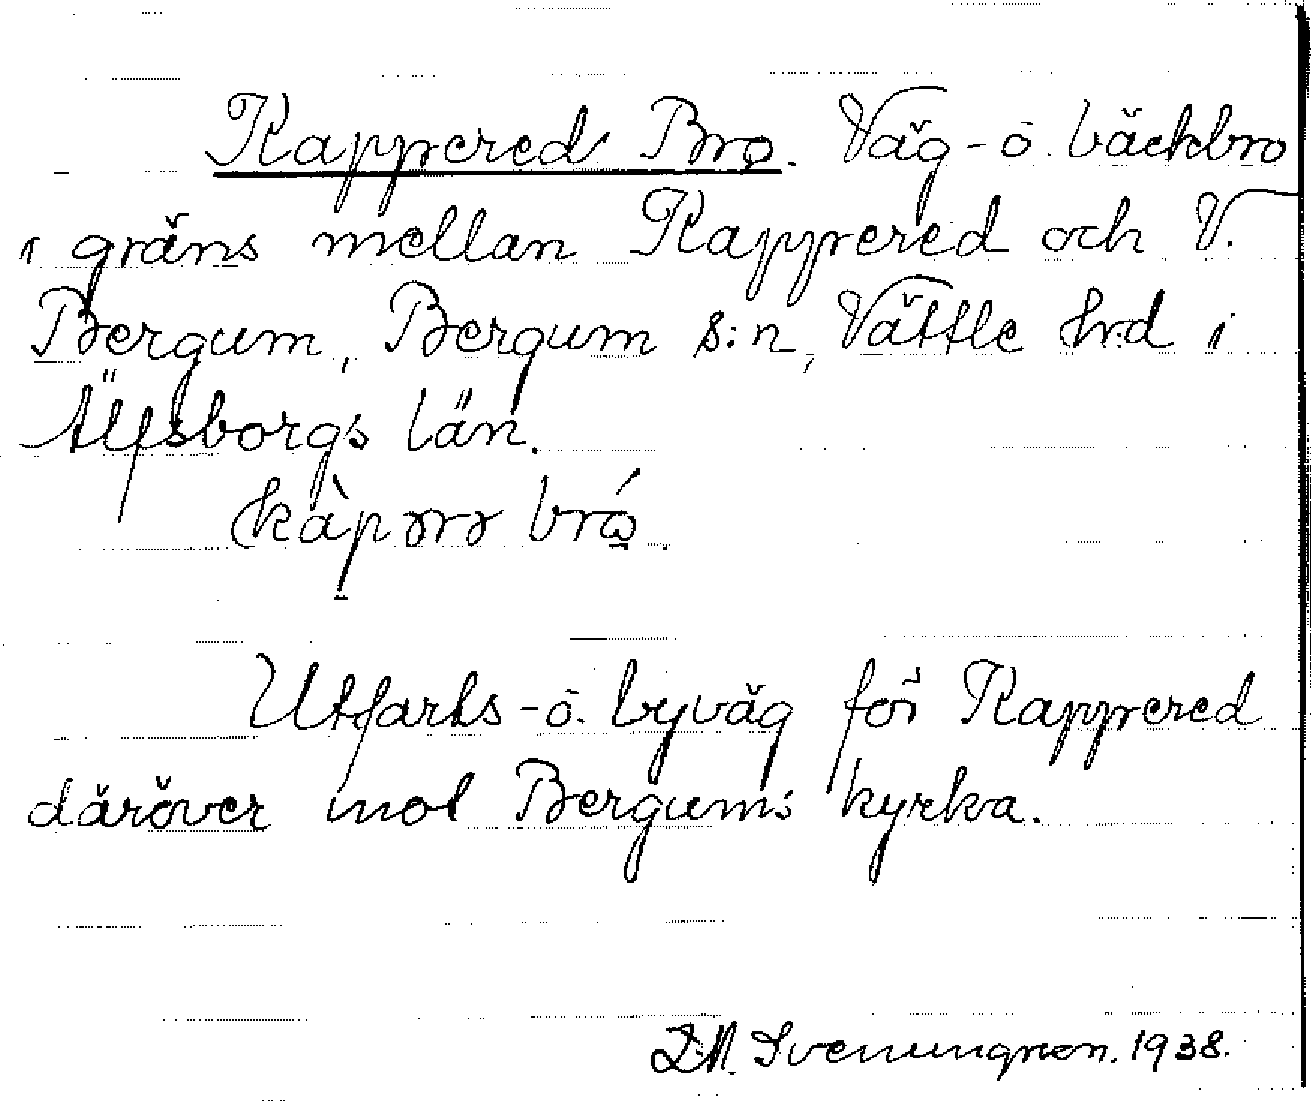 Kappered Bro. Väg- o. bäckbro
i gräns mellan Kappered och V.
Bergum, Bergum s:n, Vättle hrd i
Älfsborgs län.
Utfarts- o. byväg för Kappered
däröver mot Bergums kyrka.
Svenungson. 1938.